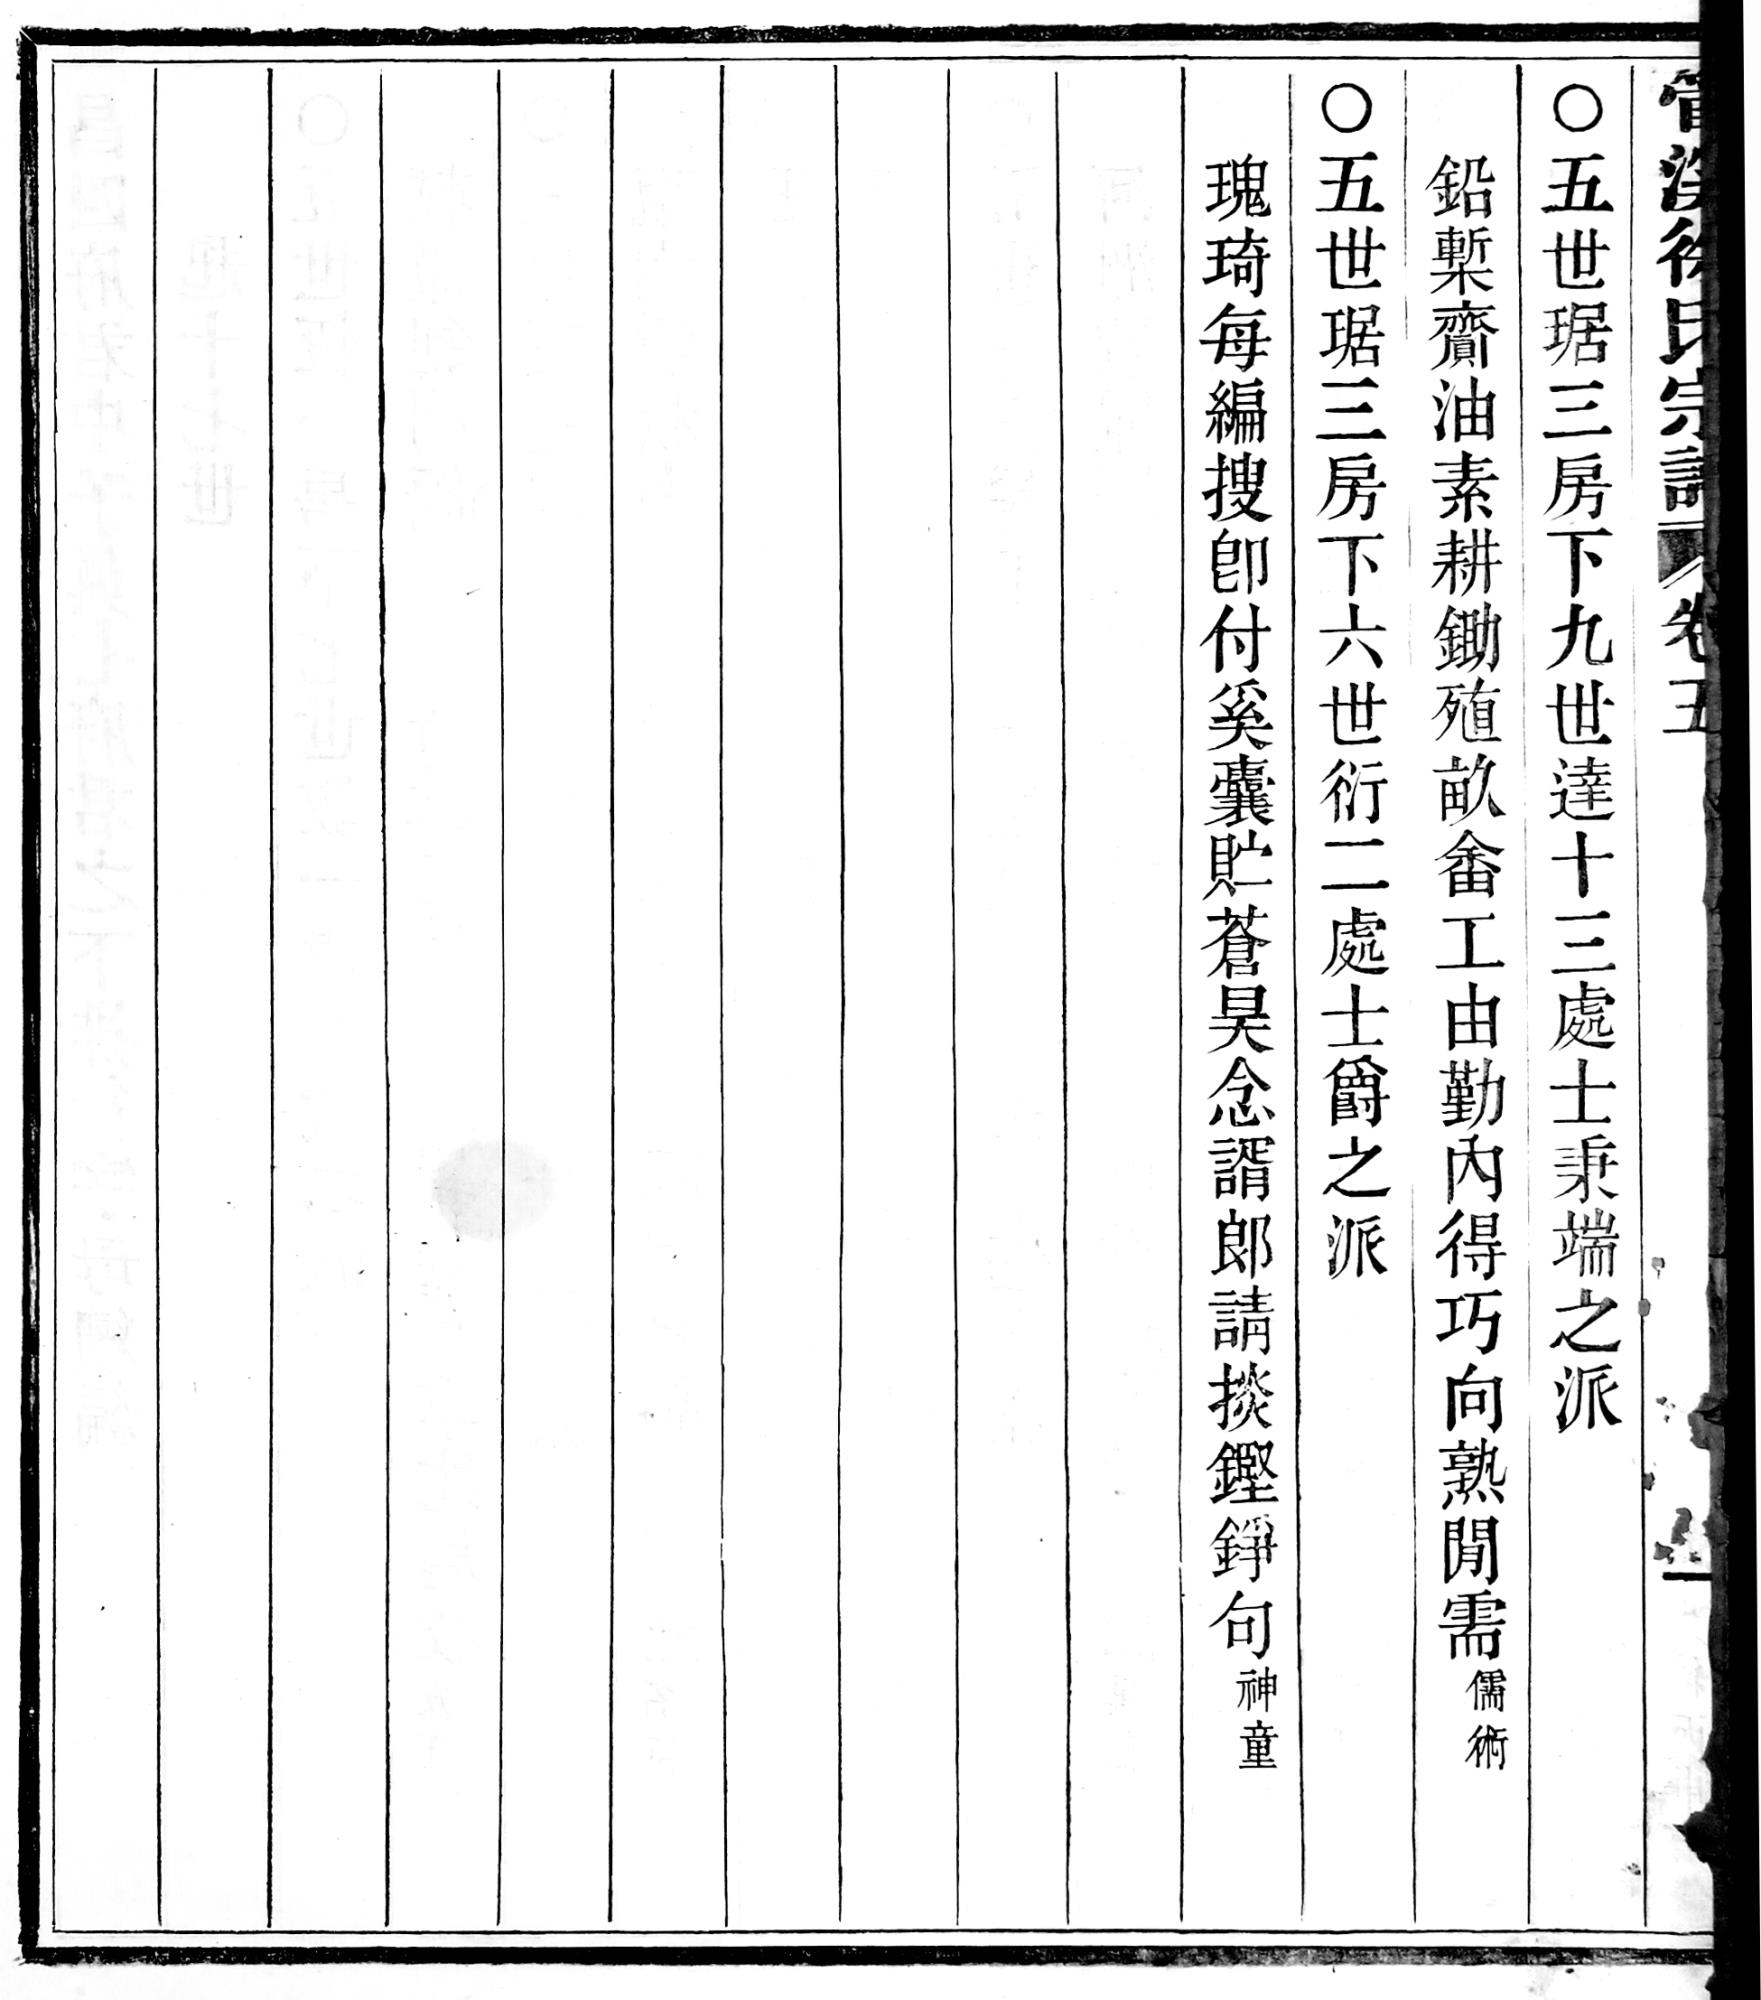 徐氏宗譜 卷五
○五世琚三房下九世達十三處士秉端之派
鉛槧齎油素耕鋤殖畝畬工由勤內得巧向熟閒需儒術
○五世琚三房下六世衍二處士爵之派
瑰琦每編搜卽付奚囊貯蒼昊念諝郎請掞鏗錚句神童